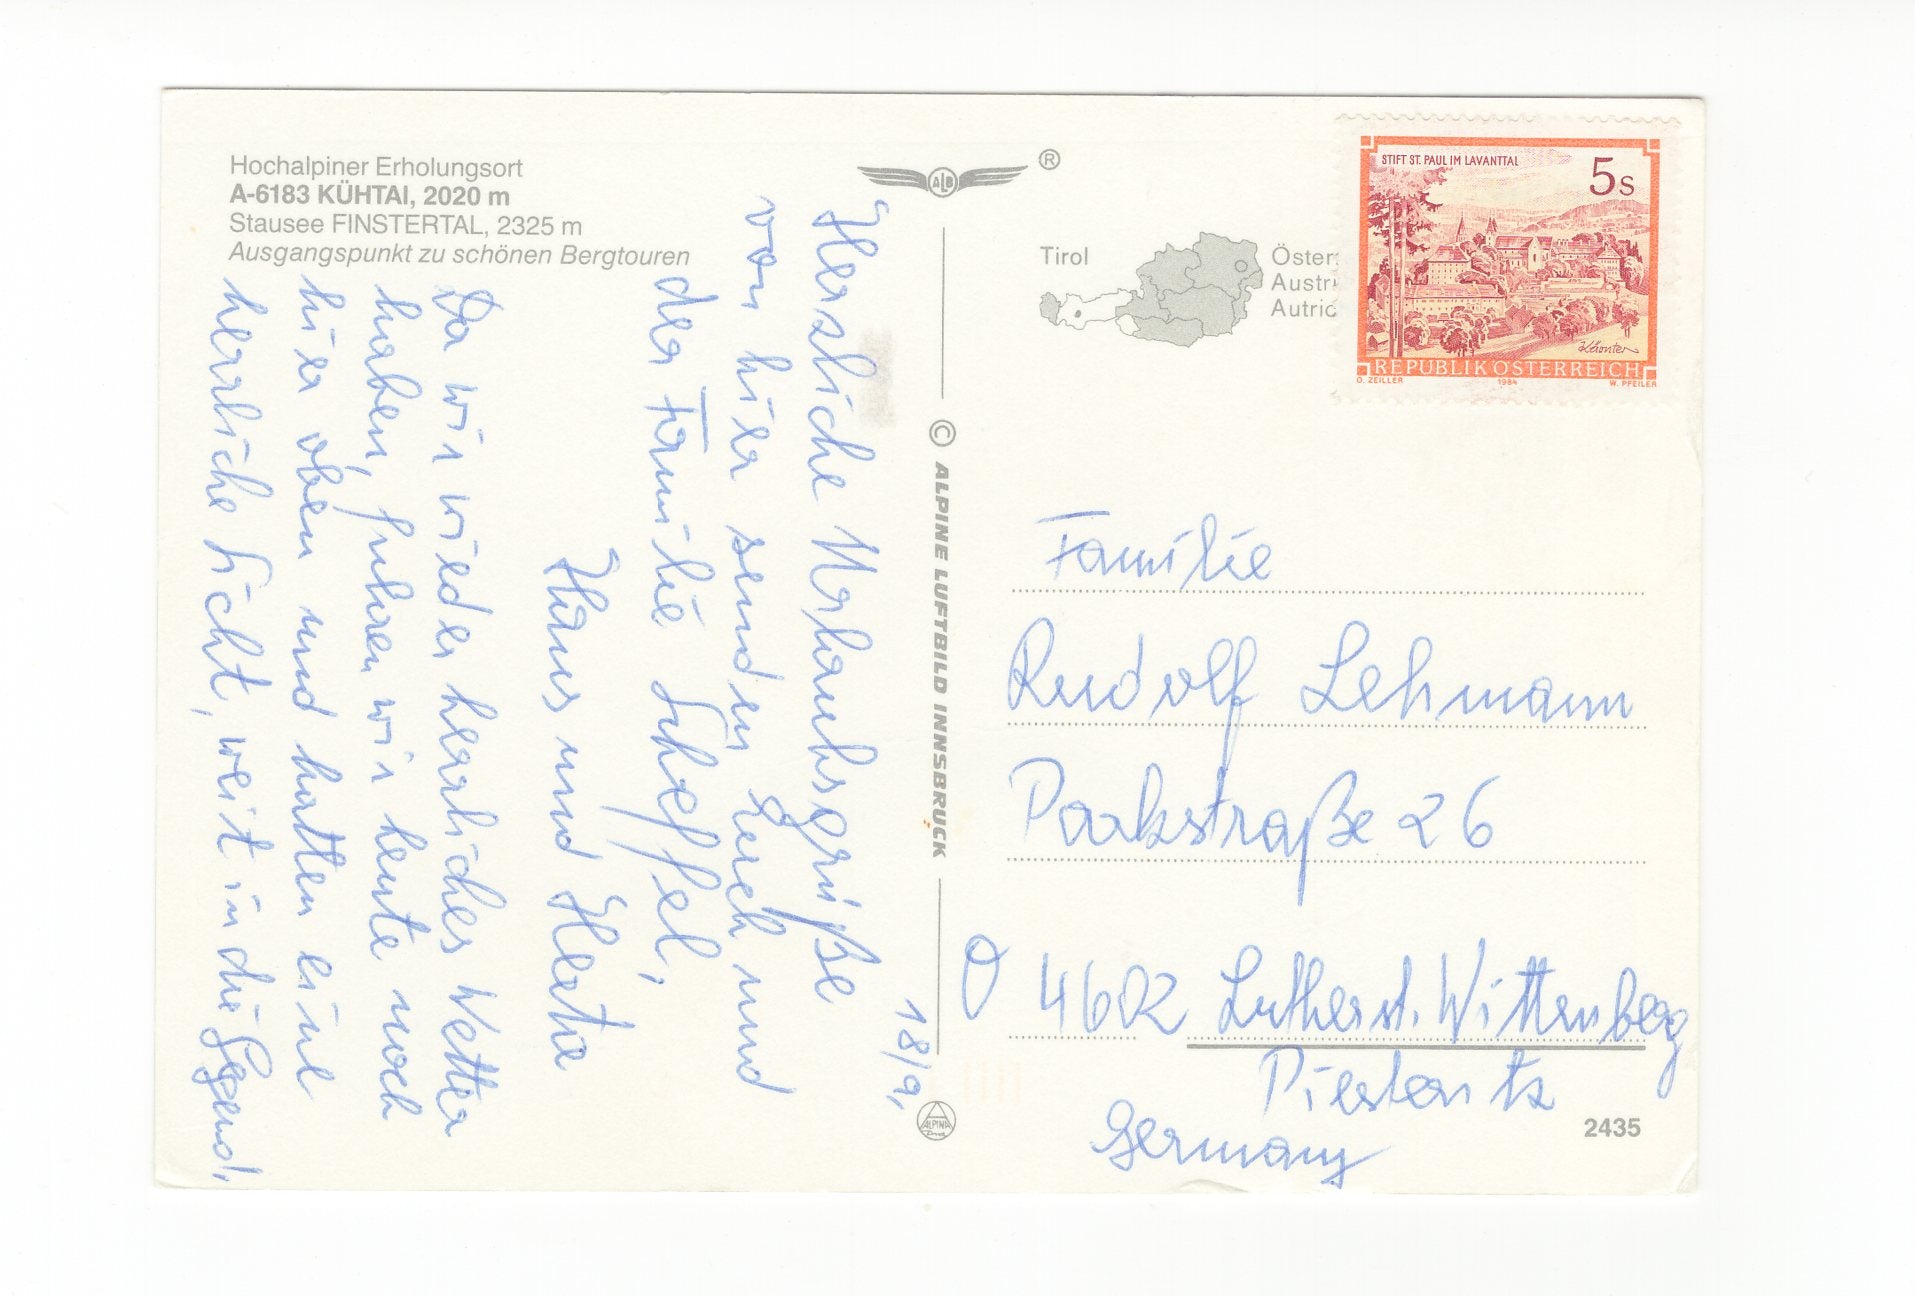 Hochalpiner Erholungsort
A-6183 KÜHTAI, 2020 m
Stausee FINSTERTAL, 2325 m
Ausgangspunkt zu schönen Bergtouren
18/9,
Herzliche Urlaubsgrüße
von hier senden Euch und
der Familie Scheffel,
Hans und Herta
Da wir wieder herrliches Wetter
haben, fuhren wir heute noch
hier oben und hatten eine
herrliche Sicht, weit in die Gegend,
ALB ®
© ALPINE LUFTBILD INNSBRUCK
ALPINA
Tirol
Öster
Austri
Autric
STIFT ST. PAUL IM LAVANTTAL
5s
Kärnten
REPUBLIK ÖSTERREICH
O. ZEILLER 1984 W. PFEILER
Familie
Rudolf Lehmann
Parkstraße 26
O 4602 Lutherst. Wittenberg
Piesteritz
Germany
2435